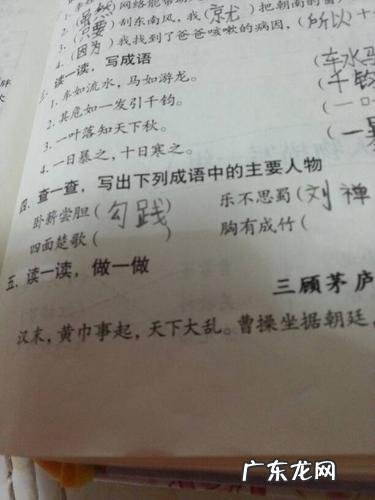 1. (虽然)网络能带
2. (只要)刮东南风，我(就)把朝南的窗
3. (因为)我找到了爸爸咳嗽的病因，(所以)
三. 读一读，写成语
1. 车如流水，马如游龙。(车水马
2. 其危如一发引千钧。(千钧
3. 一叶落知天下秋。(一叶
4. 一日暴之，十日寒之。(一暴
四. 查一查，写出下列成语中的主要人物
卧薪尝胆(勾践) 乐不思蜀(刘禅
四面楚歌( ) 胸有成竹(
五. 读一读，做一做
三顾茅庐
汉末，黄巾事起，天下大乱。曹操坐据朝廷，
广东龙网